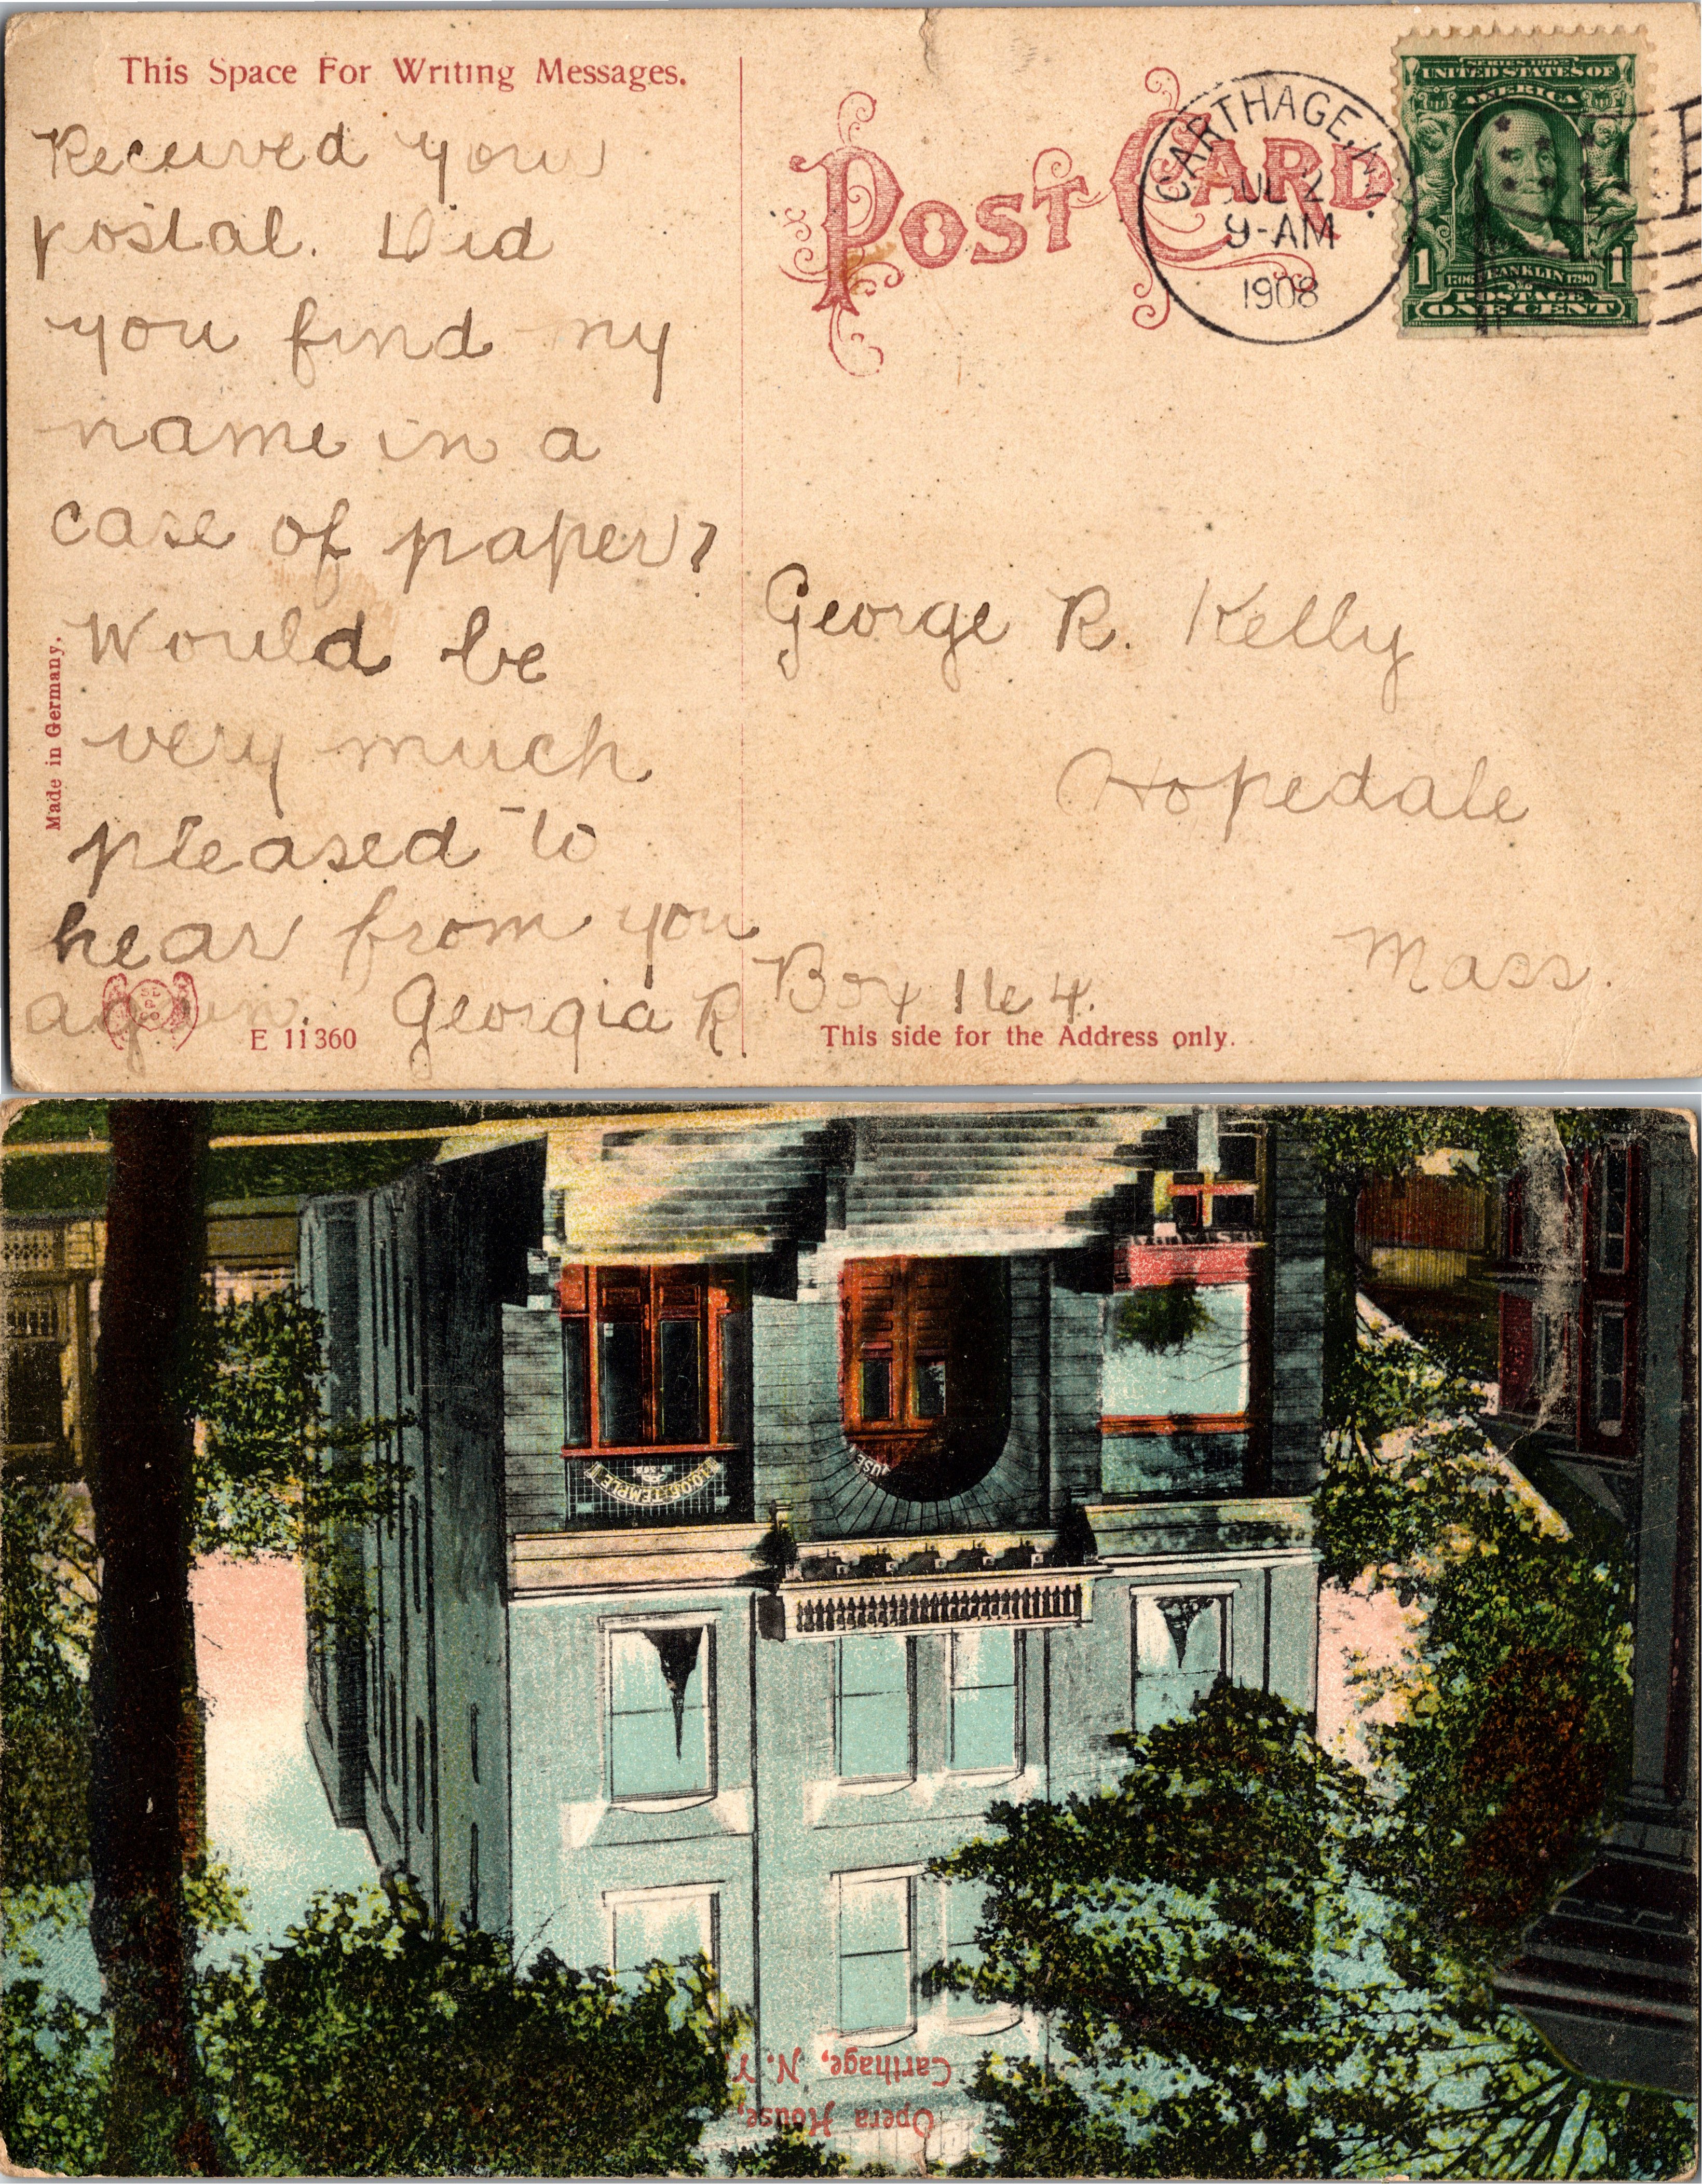 This Space For Writing Messages.
Received your
postal. Did
you find my
name in a
case of paper?
Would be
very much
pleased to
hear from you
again. Georgia R
Box 164.
Made in Germany.
E 11360
POST CARD
CARTHAGE, N.Y.
JUL 2
9-AM
1908
SERIES 1902
UNITED STATES OF
AMERICA
1706 FRANKLIN 1790
1 1
POSTAGE
ONE CENT
George R. Kelly
Hopedale
Mass.
This side for the Address only.
Opera House,
Carthage, N.Y.
I.O.O.F. TEMPLE